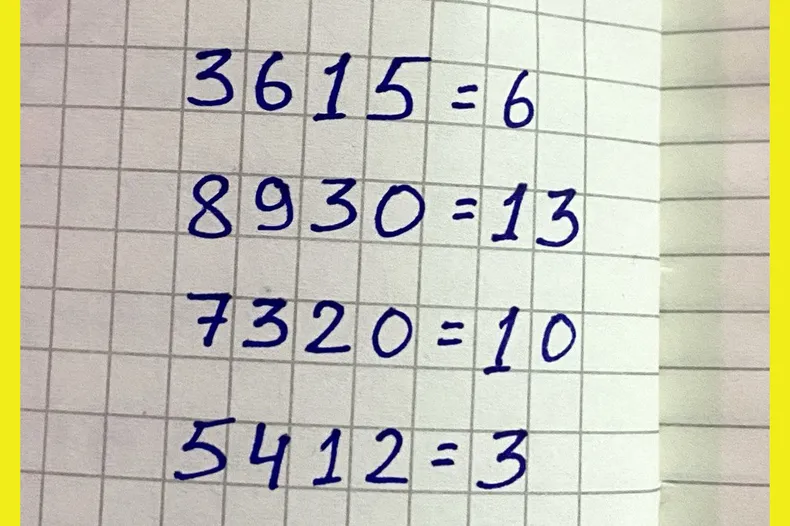 3615 = 6
8930 = 13
7320 = 10
5412 = 3